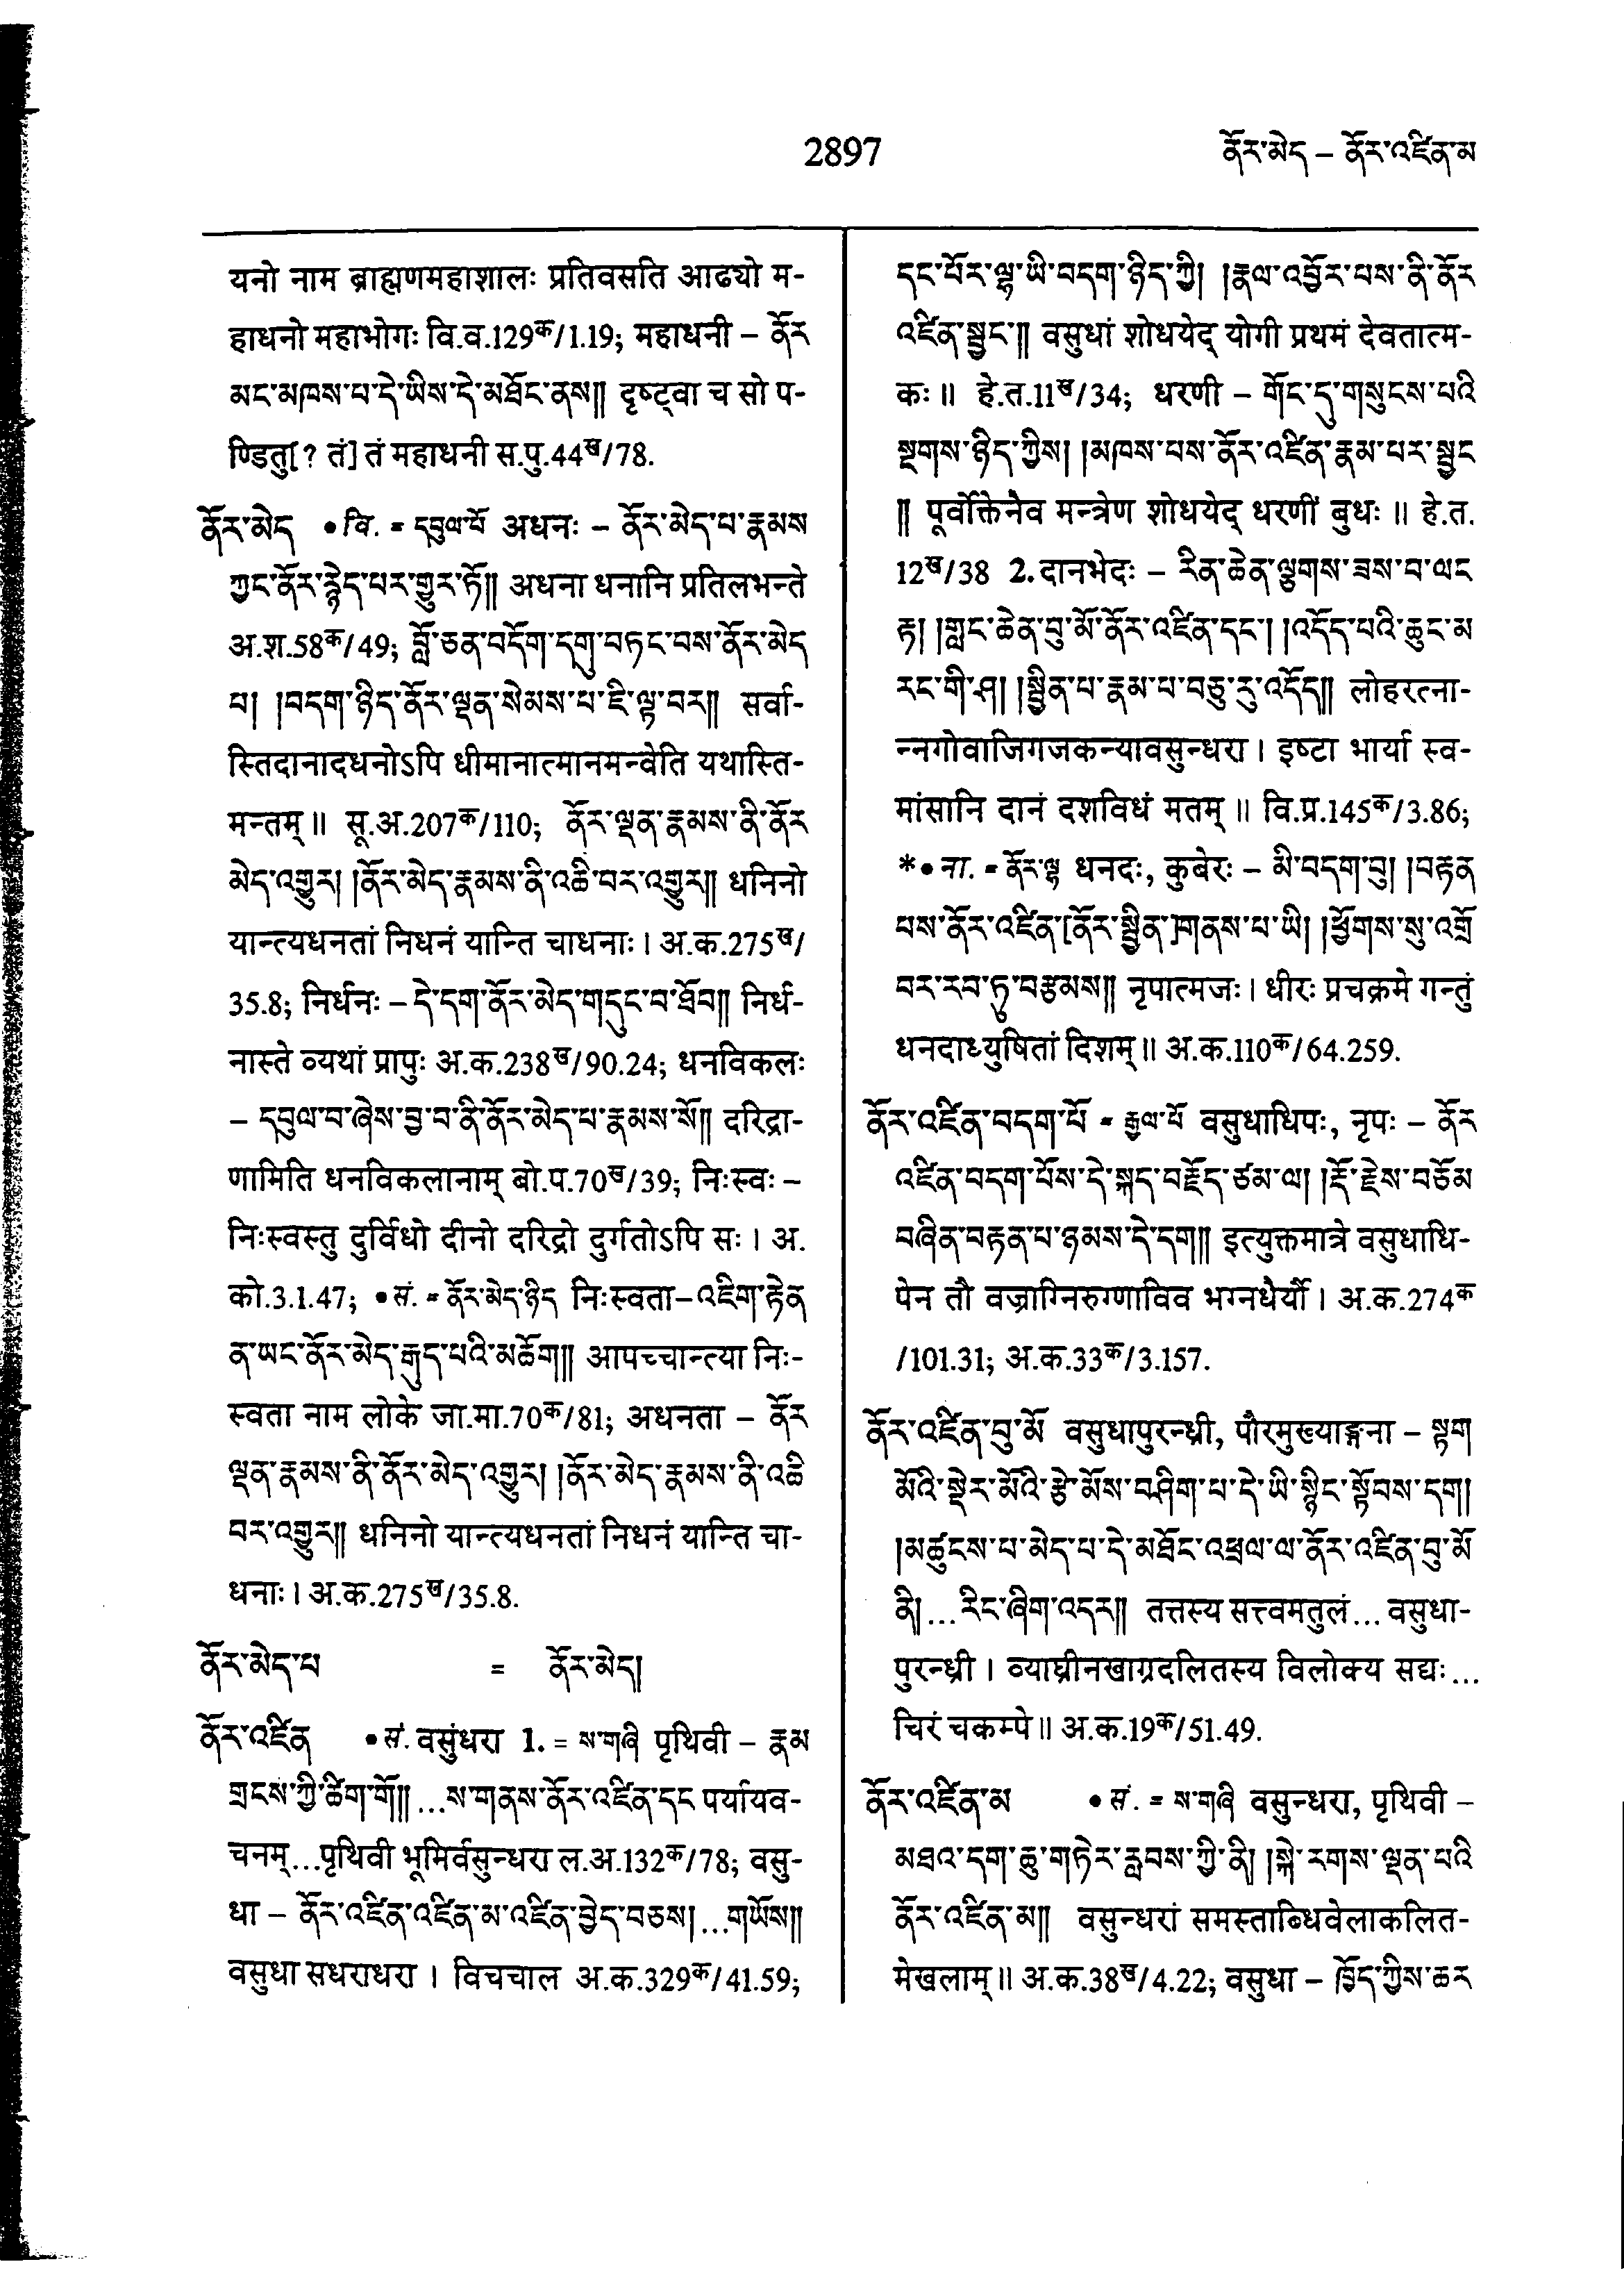 2897
ནོར་མེད – ནོར་འཛིན་མ
यनो नाम ब्राह्मणमहाशालः प्रतिवसति आढ्यो म-
हाधनो महाभोगः वि.व.129क/1.19; महाधनी – ནོར
མང་མཁས་པ་དེ་ཡིས་དེ་མཐོང་ནས༎ दृष्ट्वा च सो प-
ण्डितु[? तं] तं महाधनी स.पु.44ख/78.
ནོར་མེད • वि. = དབུལ་པོ अधनः – ནོར་མེད་པ་རྣམས
ཀྱང་ནོར་རྙེད་པར་གྱུར་ཏོ༎ अधना धनानि प्रतिलभन्ते
अ.श.58क/49; བློ་ཅན་བདོག་དགུ་བཏང་བས་ནོར་མེད
པ། །བདག་ཉིད་ནོར་ལྡན་སེམས་པ་ཇི་ལྟ་བར༎ सर्वा-
स्तिदानादधनोऽपि धीमानात्मानमन्वेति यथास्ति-
मन्तम्॥ सू.अ.207क/110; ནོར་ལྡན་རྣམས་ནི་ནོར
མེད་འགྱུར། །ནོར་མེད་རྣམས་ནི་འཆི་བར་འགྱུར༎ धनिनो
यान्त्यधनतां निधनं यान्ति चाधनाः। अ.क.275ख/
35.8; निर्धनः – དེ་དག་ནོར་མེད་གདུང་བ་ཐོབ༎ निर्ध-
नास्ते व्यथां प्रापुः अ.क.238ख/90.24; धनविकलः
– དབུལ་བ་ཞེས་བྱ་བ་ནི་ནོར་མེད་པ་རྣམས་སོ༎ दरिद्रा-
णामिति धनविकलानाम् बो.प.70ख/39; निःस्वः –
निःस्वस्तु दुर्विधो दीनो दरिद्रो दुर्गतोऽपि सः। अ.
को.3.1.47; • सं. = ནོར་མེད་ཉིད निःस्वता – འཇིག་རྟེན
ན་ཡང་ནོར་མེད་རྒུད་པའི་མཆོག༎ आपच्चान्त्या निः-
स्वता नाम लोके जा.मा.70क/81; अधनता – ནོར
ལྡན་རྣམས་ནི་ནོར་མེད་འགྱུར། །ནོར་མེད་རྣམས་ནི་འཆི
བར་འགྱུར༎ धनिनो यान्त्यधनतां निधनं यान्ति चा-
धनाः। अ.क.275ख/35.8.
ནོར་མེད་པ = ནོར་མེད།
ནོར་འཛིན • सं. वसुंधरा 1. = ས་གཞི पृथिवी – རྣམ
གྲངས་ཀྱི་ཚིག་གོ༎ ...ས་གནས་ནོར་འཛིན་དང पर्यायव-
चनम्...पृथिवी भूमिर्वसुन्धरा ल.अ.132क/78; वसु-
धा – ནོར་འཛིན་འཛིན་མ་འཛིན་བྱེད་བཅས། ...གཡོས༎
वसुधा सधराधरा। विचचाल अ.क.329क/41.59;
དང་པོར་ལྷ་ཡི་བདག་ཉིད་ཀྱི། །རྣལ་འབྱོར་པས་ནི་ནོར
འཛིན་སྦྱང༌༎ वसुधां शोधयेद् योगी प्रथमं देवतात्म-
कः॥ हे.त.11ख/34; धरणी – གོང་དུ་གསུངས་པའི
སྔགས་ཉིད་ཀྱིས། །མཁས་པས་ནོར་འཛིན་རྣམ་པར་སྦྱང
༎ पूर्वोक्तेनैव मन्त्रेण शोधयेद् धरणीं बुधः॥ हे.त.
12ख/38 2. दानभेदः – རིན་ཆེན་ལྕགས་ཟས་བ་ལང
རྟ། །གླང་ཆེན་བུ་མོ་ནོར་འཛིན་དང༌། །འདོད་པའི་ཆུང་མ
རང་གི་ཤ། །སྦྱིན་པ་རྣམ་པ་བཅུ་རུ་འདོད༎ लोहरत्ना-
न्नगोवाजिगजकन्यावसुन्धरा। इष्टा भार्या स्व-
मांसानि दानं दशविधं मतम्॥ वि.प्र.145क/3.86;
*• ना. = ནོར་ལྷ धनदः, कुबेरः – མི་བདག་བུ། །བརྟན
པས་ནོར་འཛིན་[ནོར་སྦྱིན་]གནས་པ་ཡི། །ཕྱོགས་སུ་འགྲོ
བར་རབ་ཏུ་བརྩམས༎ नृपात्मजः। धीरः प्रचक्रमे गन्तुं
धनदाध्युषितां दिशम्॥ अ.क.110क/64.259.
ནོར་འཛིན་བདག་པོ = རྒྱལ་པོ वसुधाधिपः, नृपः – ནོར
འཛིན་བདག་པོས་དེ་སྐད་བརྗོད་ཙམ་ལ། །རྡོ་རྗེས་བཅོམ
བཞིན་བརྟན་པ་ཉམས་དེ་དག༎ इत्युक्तमात्रे वसुधाधि-
पेन तौ वज्राग्निरुग्णाविव भग्नधैर्यौ। अ.क.274क
/101.31; अ.क.33क/3.157.
ནོར་འཛིན་བུ་མོ वसुधापुरन्ध्री, पौरमुख्याङ्गना – སྟག
མོའི་སྡེར་མོའི་རྩེ་མོས་བཤིག་པ་དེ་ཡི་སྙིང་སྟོབས་དག།
།མཚུངས་པ་མེད་པ་དེ་མཐོང་འཕྲལ་ལ་ནོར་འཛིན་བུ་མོ
ནི། ...རིང་ཞིག་འདར༎ तत्तस्य सत्त्वमतुलं... वसुधा-
पुरन्ध्री। व्याघ्रीनखाग्रदलितस्य विलोक्य सद्यः...
चिरं चकम्पे॥ अ.क.19क/51.49.
ནོར་འཛིན་མ • सं. = ས་གཞི वसुन्धरा, पृथिवी –
མཐའ་དག་ཆུ་གཏེར་རླབས་ཀྱི་ནི། །སྐེ་རགས་ལྡན་པའི
ནོར་འཛིན་མ༎ वसुन्धरां समस्ताब्धिवेलाकलित-
मेखलाम्॥ अ.क.38ख/4.22; वसुधा – ཁྱོད་ཀྱིས་ཆར